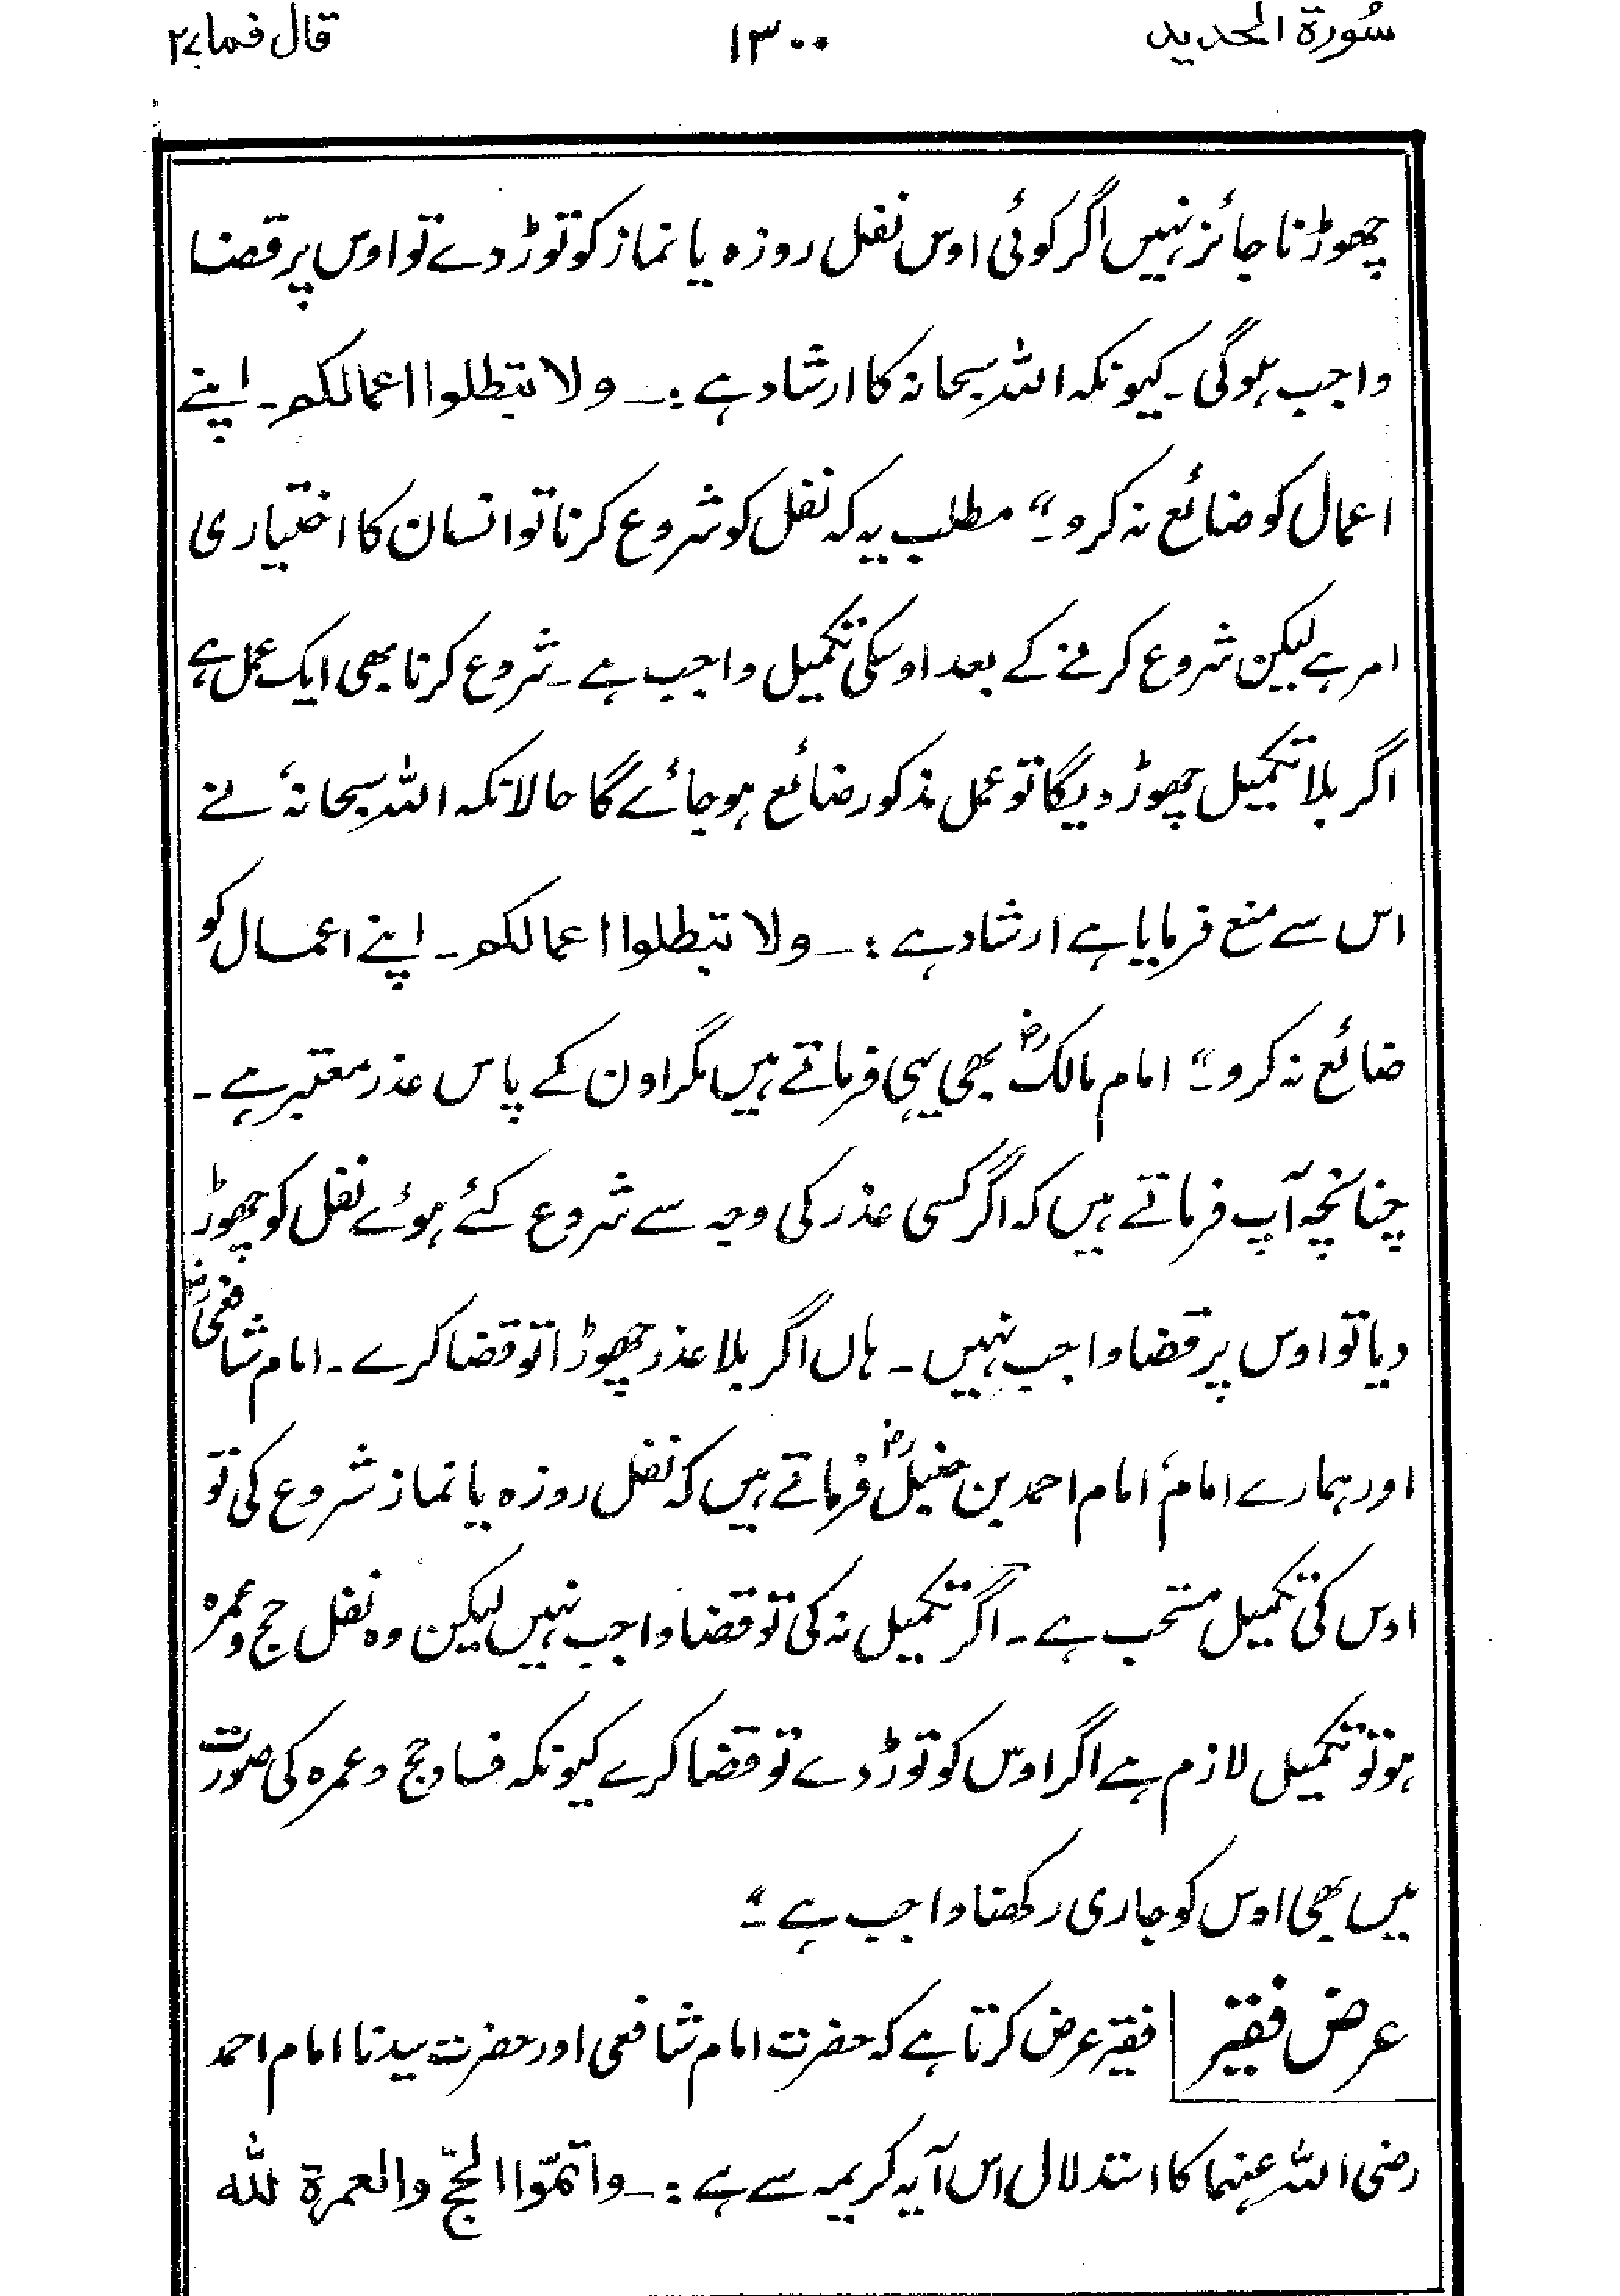 سُورة الحديد ۱۳۰۰ قال فما ۲۷
چھوڑنا جائز نہیں اگر کوئی اوس نفل روزہ یا نماز کو توڑ دے تو اوس پر قضا
واجب ہوگی ۔ کیونکہ اللہ سبحانہ کا ارشاد ہے :۔ ولا تبطلوا اعمالکم ۔ اپنے
اعمال کو ضائع نہ کرو ۔" مطلب یہ کہ نفل کو شروع کرنا تو انسان کا اختیاری
امر ہے لیکن شروع کرنے کے بعد اوسکی تکمیل واجب ہے ۔ شروع کرنا بھی ایک عمل ہے
اگر بلا تکمیل چھوڑ دیگا تو عمل مذکور ضائع ہو جائے گا حالانکہ اللہ سبحانہٗ نے
اس سے منع فرمایا ہے ارشاد ہے :۔ ولا تبطلوا اعمالکم ۔ اپنے اعمال کو
ضائع نہ کرو ۔" امام مالکؓ بھی یہی فرماتے ہیں مگر اون کے پاس عذر معتبر ہے ۔
چنانچہ آپ فرماتے ہیں کہ اگر کسی عذر کی وجہ سے شروع کئے ہوئے نفل کو چھوڑ
دیا تو اوس پر قضا واجب نہیں ۔ ہاں اگر بلا عذر چھوڑا تو قضا کرے ۔ امام شافعیؓ
اور ہمارے امامؑ امام احمد بن حنبلؓ فرماتے ہیں کہ نفل روزہ یا نماز شروع کی تو
اوس کی تکمیل مستحب ہے ۔ اگر تکمیل نہ کی تو قضا واجب نہیں لیکن وہ نفل حج و عمرہ
ہو تو تکمیل لازم ہے اگر اوس کو توڑ دے تو قضا کرے کیونکہ فساد حج و عمرہ کی صورت
میں بھی اوس کو جاری رکھنا واجب ہے ۔"
عرض فقیر فقیر عرض کرتا ہے کہ حضرت امام شافعی اور حضرت سیدنا امام احمد
رضی اللہ عنہما کا استدلال اس آیہ کریمہ سے ہے :۔ واتمّوا الحجّ والعمرة لله